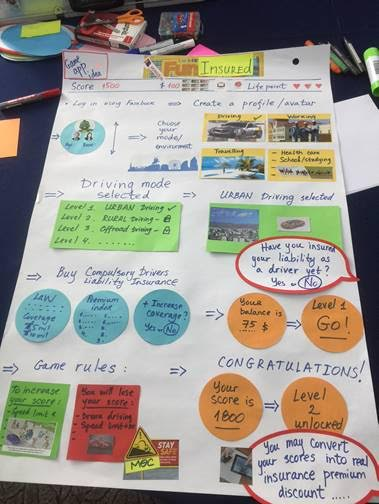 Game app idea
Fun
Insured
Score ₺500
$ 100
Life point
• Log in using Facebook ⇒ Create a profile/avatar
⇒ Choose your mode/
environment
Driving ✓
Working
Travelling
- Health care
- School/studying
⇒ Driving mode
selected
⇒ URBAN Driving selected
Level 1. URBAN Driving ✓
Level 2. RURAL Driving -
Level 3. Offroad driving -
Level 4. ......
Have you insured
your liability as
a driver yet?
Yes or No
⇒ Buy Compulsory Drivers
Liability Insurance
LAW
Coverage
Premium
index
+ Increase
coverage?
Yes or No
⇒ Your
balance is
75 $
⇒ Level 1
GO!
⇒ Game rules:
⇒ CONGRATULATIONS!
To increase
your score:
- Speed limit
You will lose
your score:
- Drunk driving
- Speed limit
MGC
STAY
SAFE
Your
score is
1800
⇒ Level
2
unlocked
You may convert
your scores into real
insurance premium
discount .....